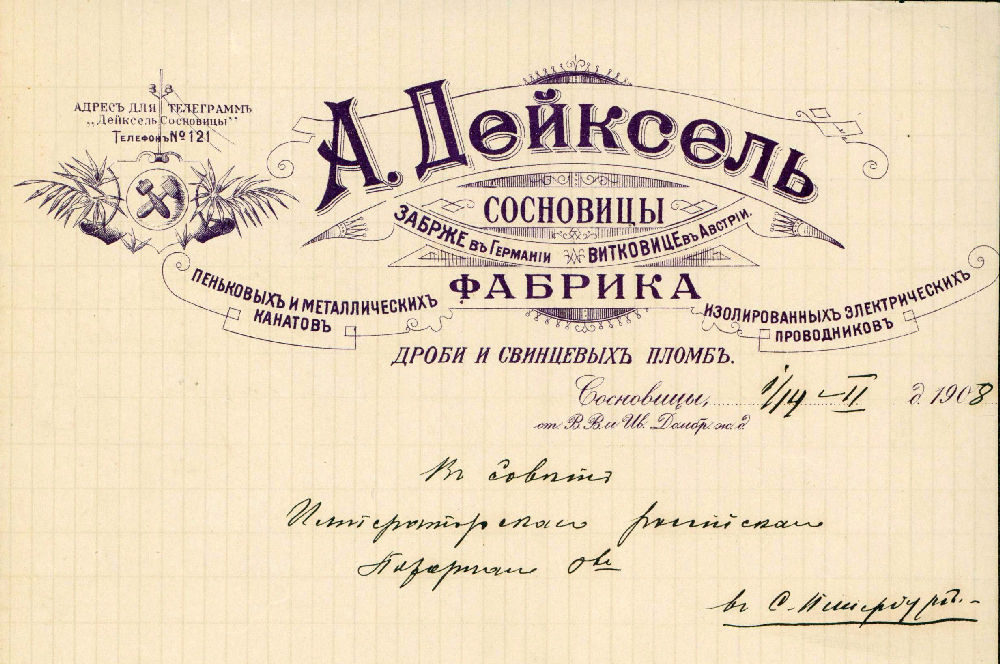 АДРЕСЪ ДЛЯ ТЕЛЕГРАММЪ
„Дейксель Сосновицы"
ТЕЛЕФОНЪ № 121
А. Дейксель
СОСНОВИЦЫ
ЗАБРЖЕ въ ГЕРМАНІИ ВИТКОВИЦЕ въ АВСТРІИ.
ФАБРИКА
ПЕНЬКОВЫХЪ И МЕТАЛЛИЧЕСКИХЪ
КАНАТОВЪ
ИЗОЛИРОВАННЫХЪ ЭЛЕКТРИЧЕСКИХЪ
ПРОВОДНИКОВЪ
ДРОБИ И СВИНЦЕВЫХЪ ПЛОМБЪ.
Сосновицы, 1/14-II д. 1908
ст. В. В. и Ив. Домбр. ж. д.
Въ Совѣтъ
Императорскаго россійскаго
Пожарнаго о-ва
въ С. Петербургѣ.